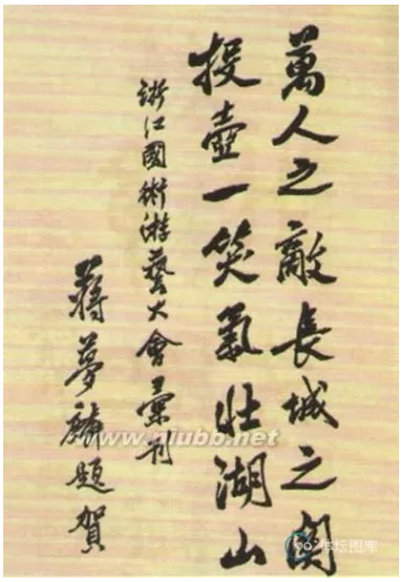 萬人之敵長城之關
投壺一笑氣壯湖山
浙江國術游藝大會彙刊
蔣夢麟題賀
www.niubb.net